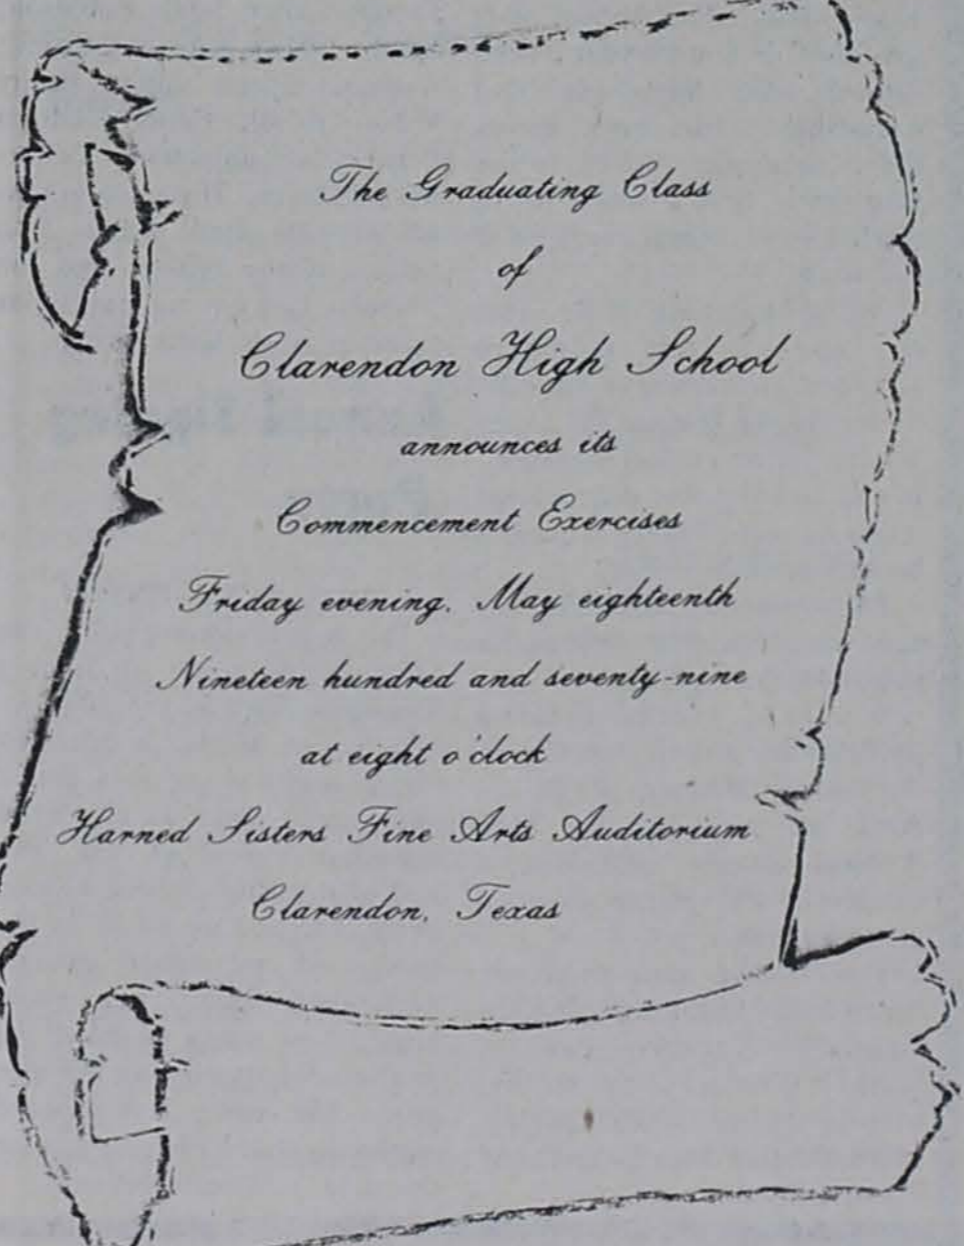 The Graduating Class
of
Clarendon High School
announces its
Commencement Exercises
Friday evening, May eighteenth
Nineteen hundred and seventy-nine
at eight o'clock
Harned Sisters Fine Arts Auditorium
Clarendon, Texas